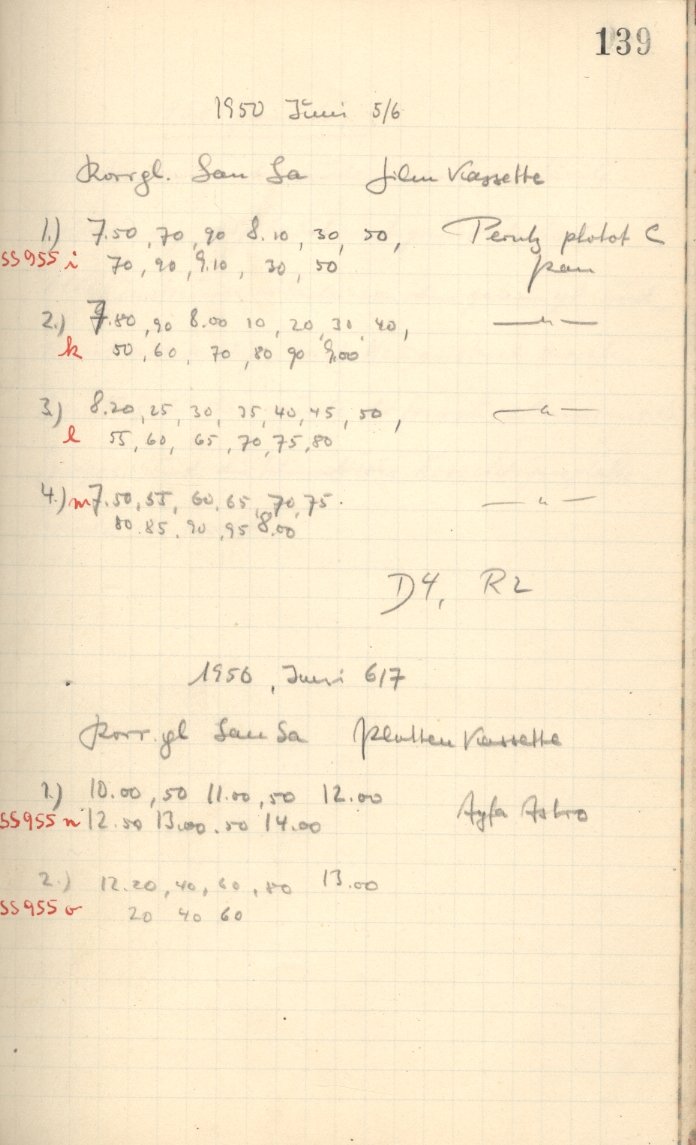 139
1950 Juni 5/6
Korrgl. San Sa Film Kassette
1.) 7.50, 70, 90 8.10, 30, 50, Perutz photot C
SS955 i 70, 90, 9.10, 30, 50 pan
2.) 7.80, 90 8.00 10, 20, 30, 40, — " —
k 50, 60, 70, 80 90 9.00
3.) 8.20, 25, 30, 35, 40, 45, 50, — " —
l 55, 60, 65, 70, 75, 80
4.) m 7.50, 55, 60, 65, 70, 75. — " —
80 85, 90, 95 8.00
D4, R2
1950, Juni 6/7
Korr.gl San Sa Platten Kassette
1.) 10.00, 50 11.00, 50 12.00 Agfa Astro
SS955 n 12.50 13.00. 50 14.00
2.) 12.20, 40, 60, 80 13.00
SS955 o 20 40 60